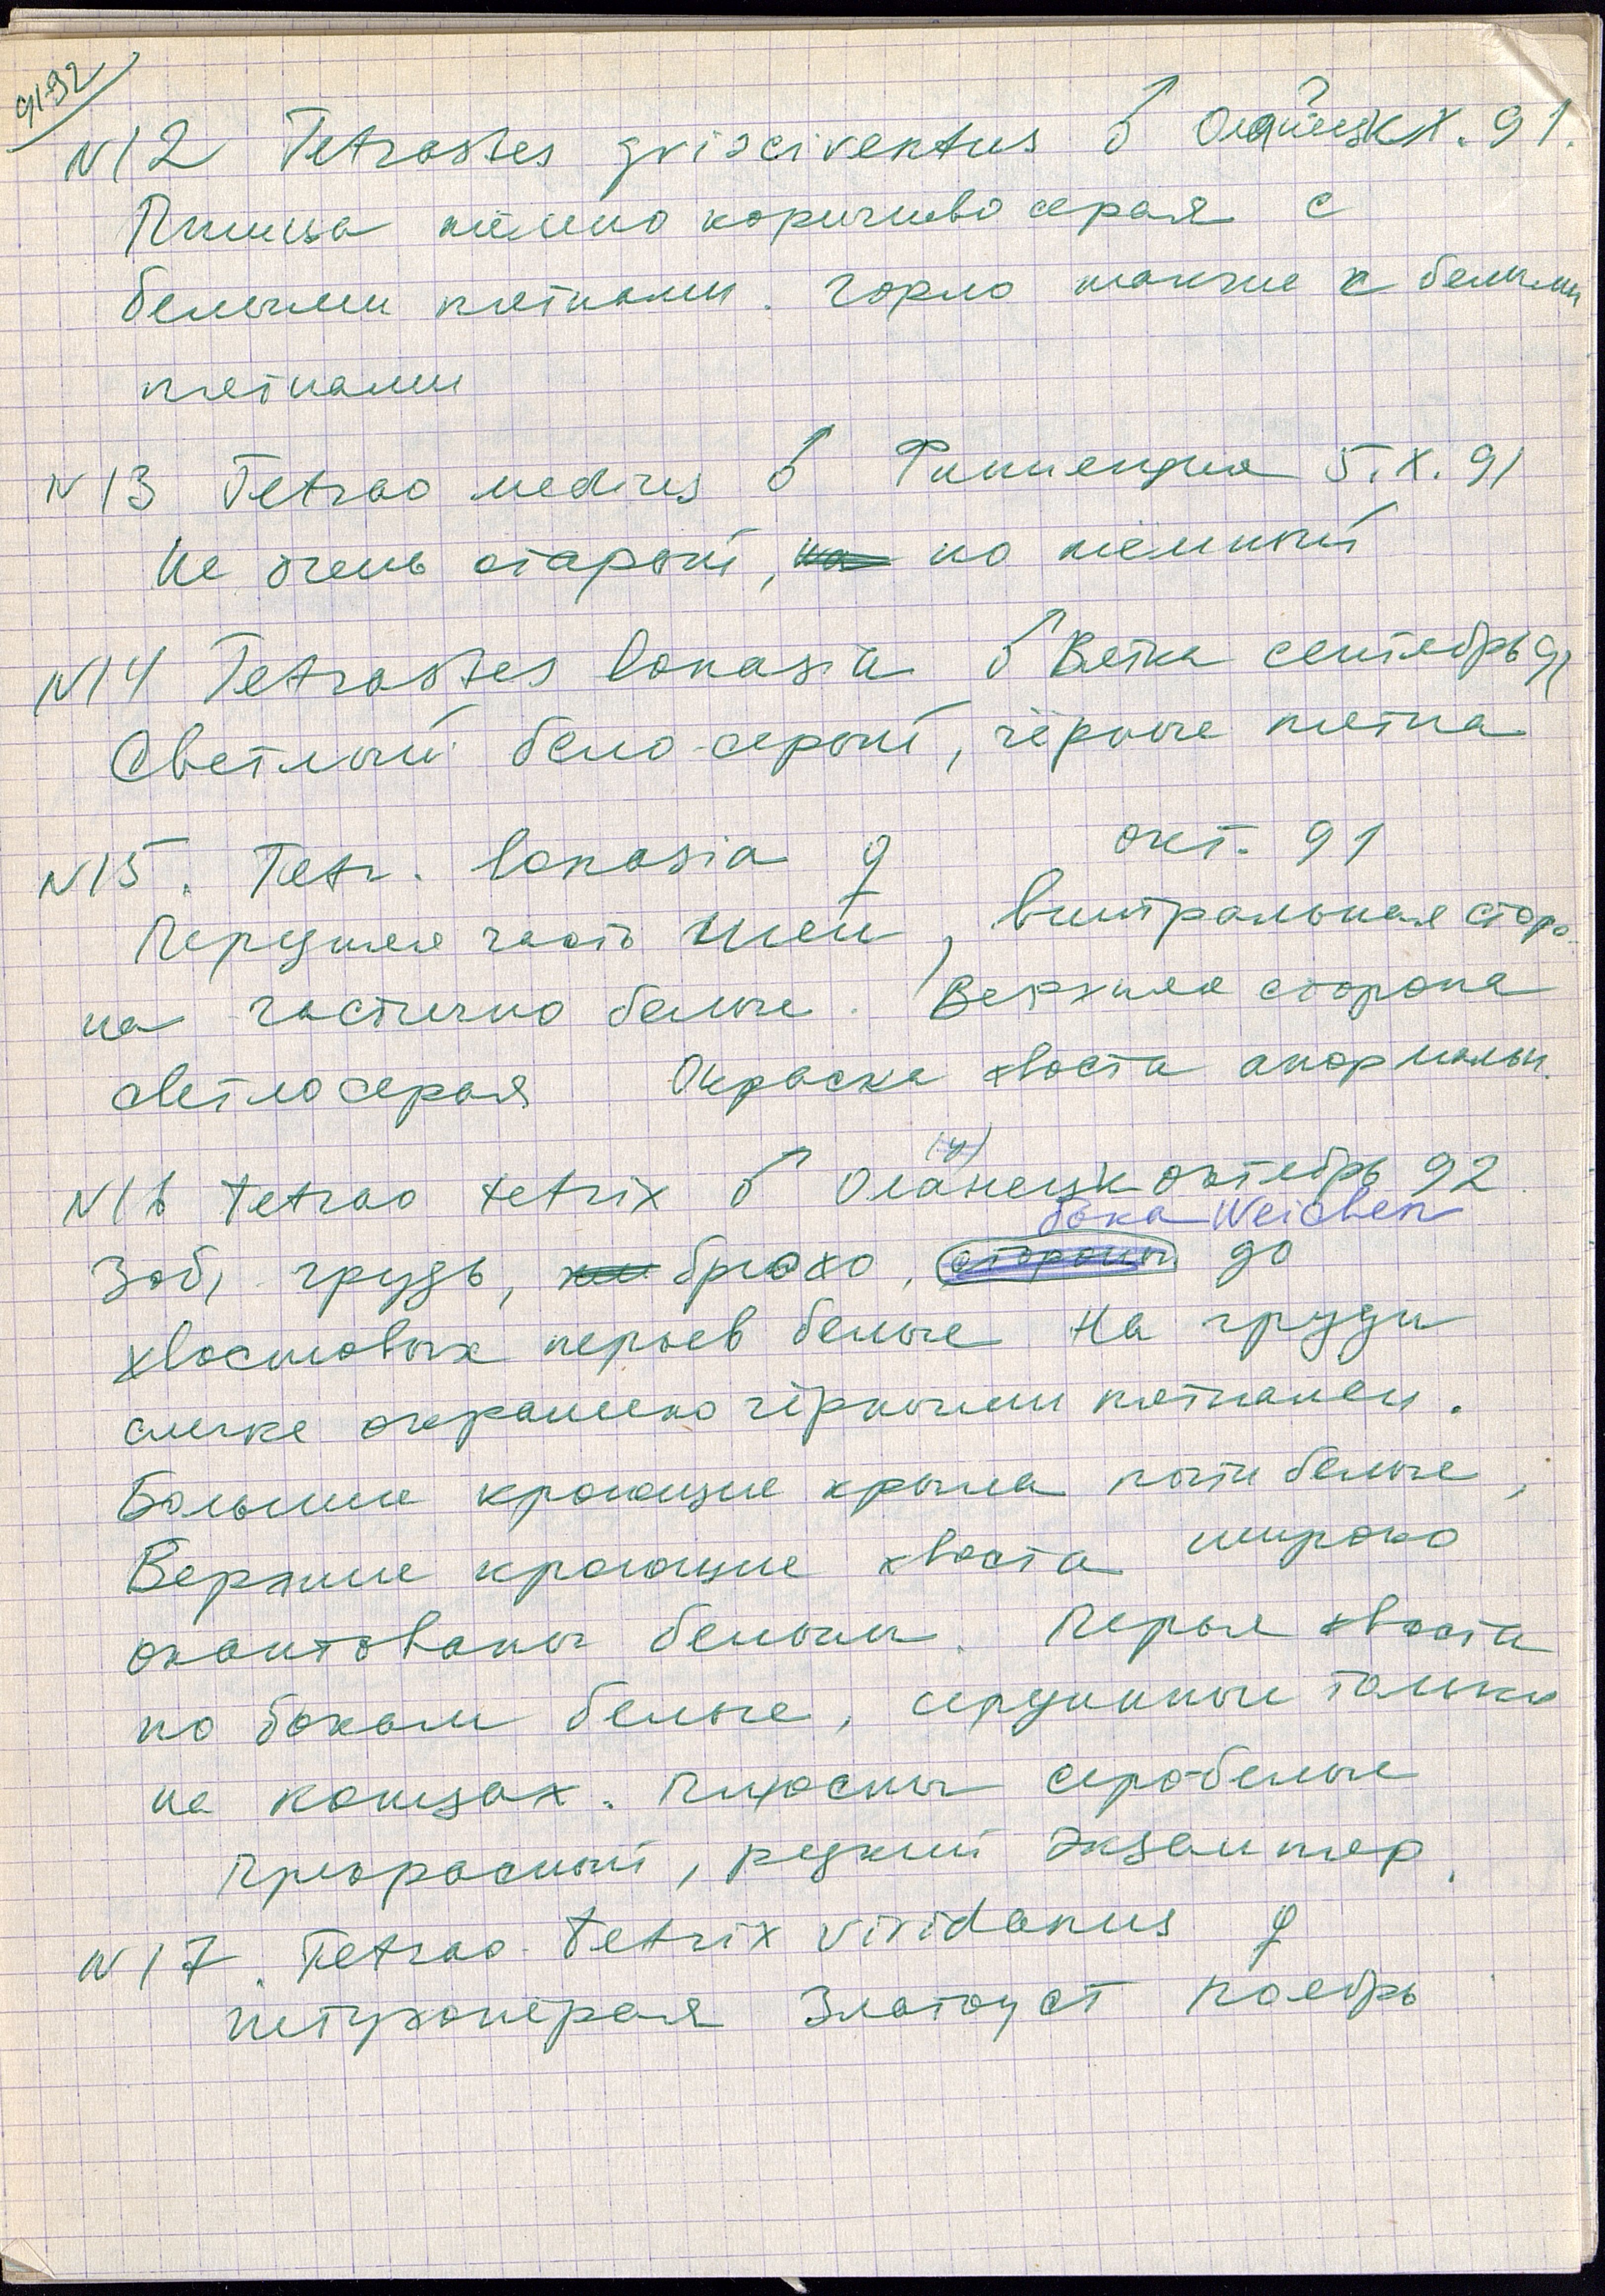 91-92
N12 Tetrastes grisciventus ♂ Оланецк X. 91.
?
Птица тёмно коричнево серая с
белыми пятнами. Горло также с белыми
пятнами
N13 Tetrao medius ♂ Финлендия 5.X.91
Не очень старый, но тёмный
N14 Tetrastes bonasia ♂ Вятка сентябрь 91
Светлый бело-серый, чёрные пятна
N15. Tetr. bonasia ♀ окт. 91
Передняя часть шеи, вентральная сторо-
на частично белые. Верхняя сторона
светлосерая Окраска хвоста анормальн.
(у)
N16 Tetrao tetrix ♂ Оланецк октябрь 92
бока Weichen
Зоб, грудь, брюхо, стороны до
хвостовых перьев белые На груди
слегке окрашено чёрными пятнами.
Большие кроющие крыла почти белые,
Верхние кроющие хвоста широко
окантованы белым. Перья хвоста
по бокам белые, срединные только
на концах. Плюсны серо-белые
Прекрасный, редкий экземпляр.
N17. Tetrao tetrix viridanus ♀
петухопёрая Златоуст ноябрь